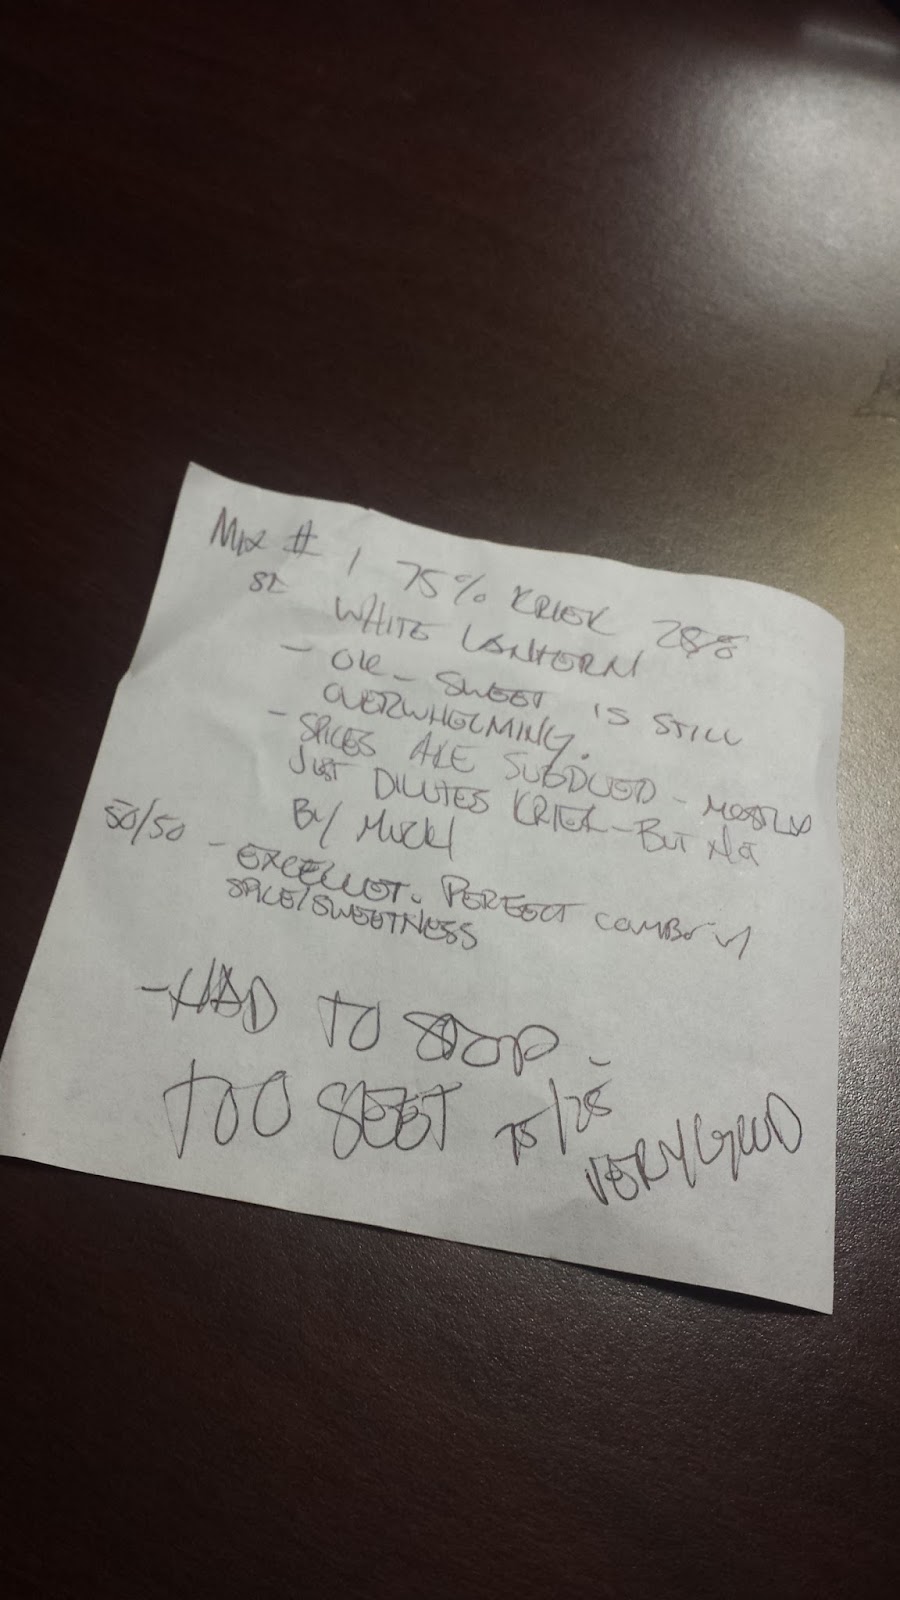 MIX # 1 75% KRIEK 25%
WHITE LANTERN
- OK - SWEET IS STILL
OVERWHELMING.
- SPICES ARE SUBDUED - MOSTLY
JUST DILUTES KRIEK - BUT NOT
BY MUCH
50/50 - EXCELLET. PERFECT COMBO OF
SPICE/SWEETNESS
- HAD TO STOP -
TOO SEET 75/25
VERY GOOD